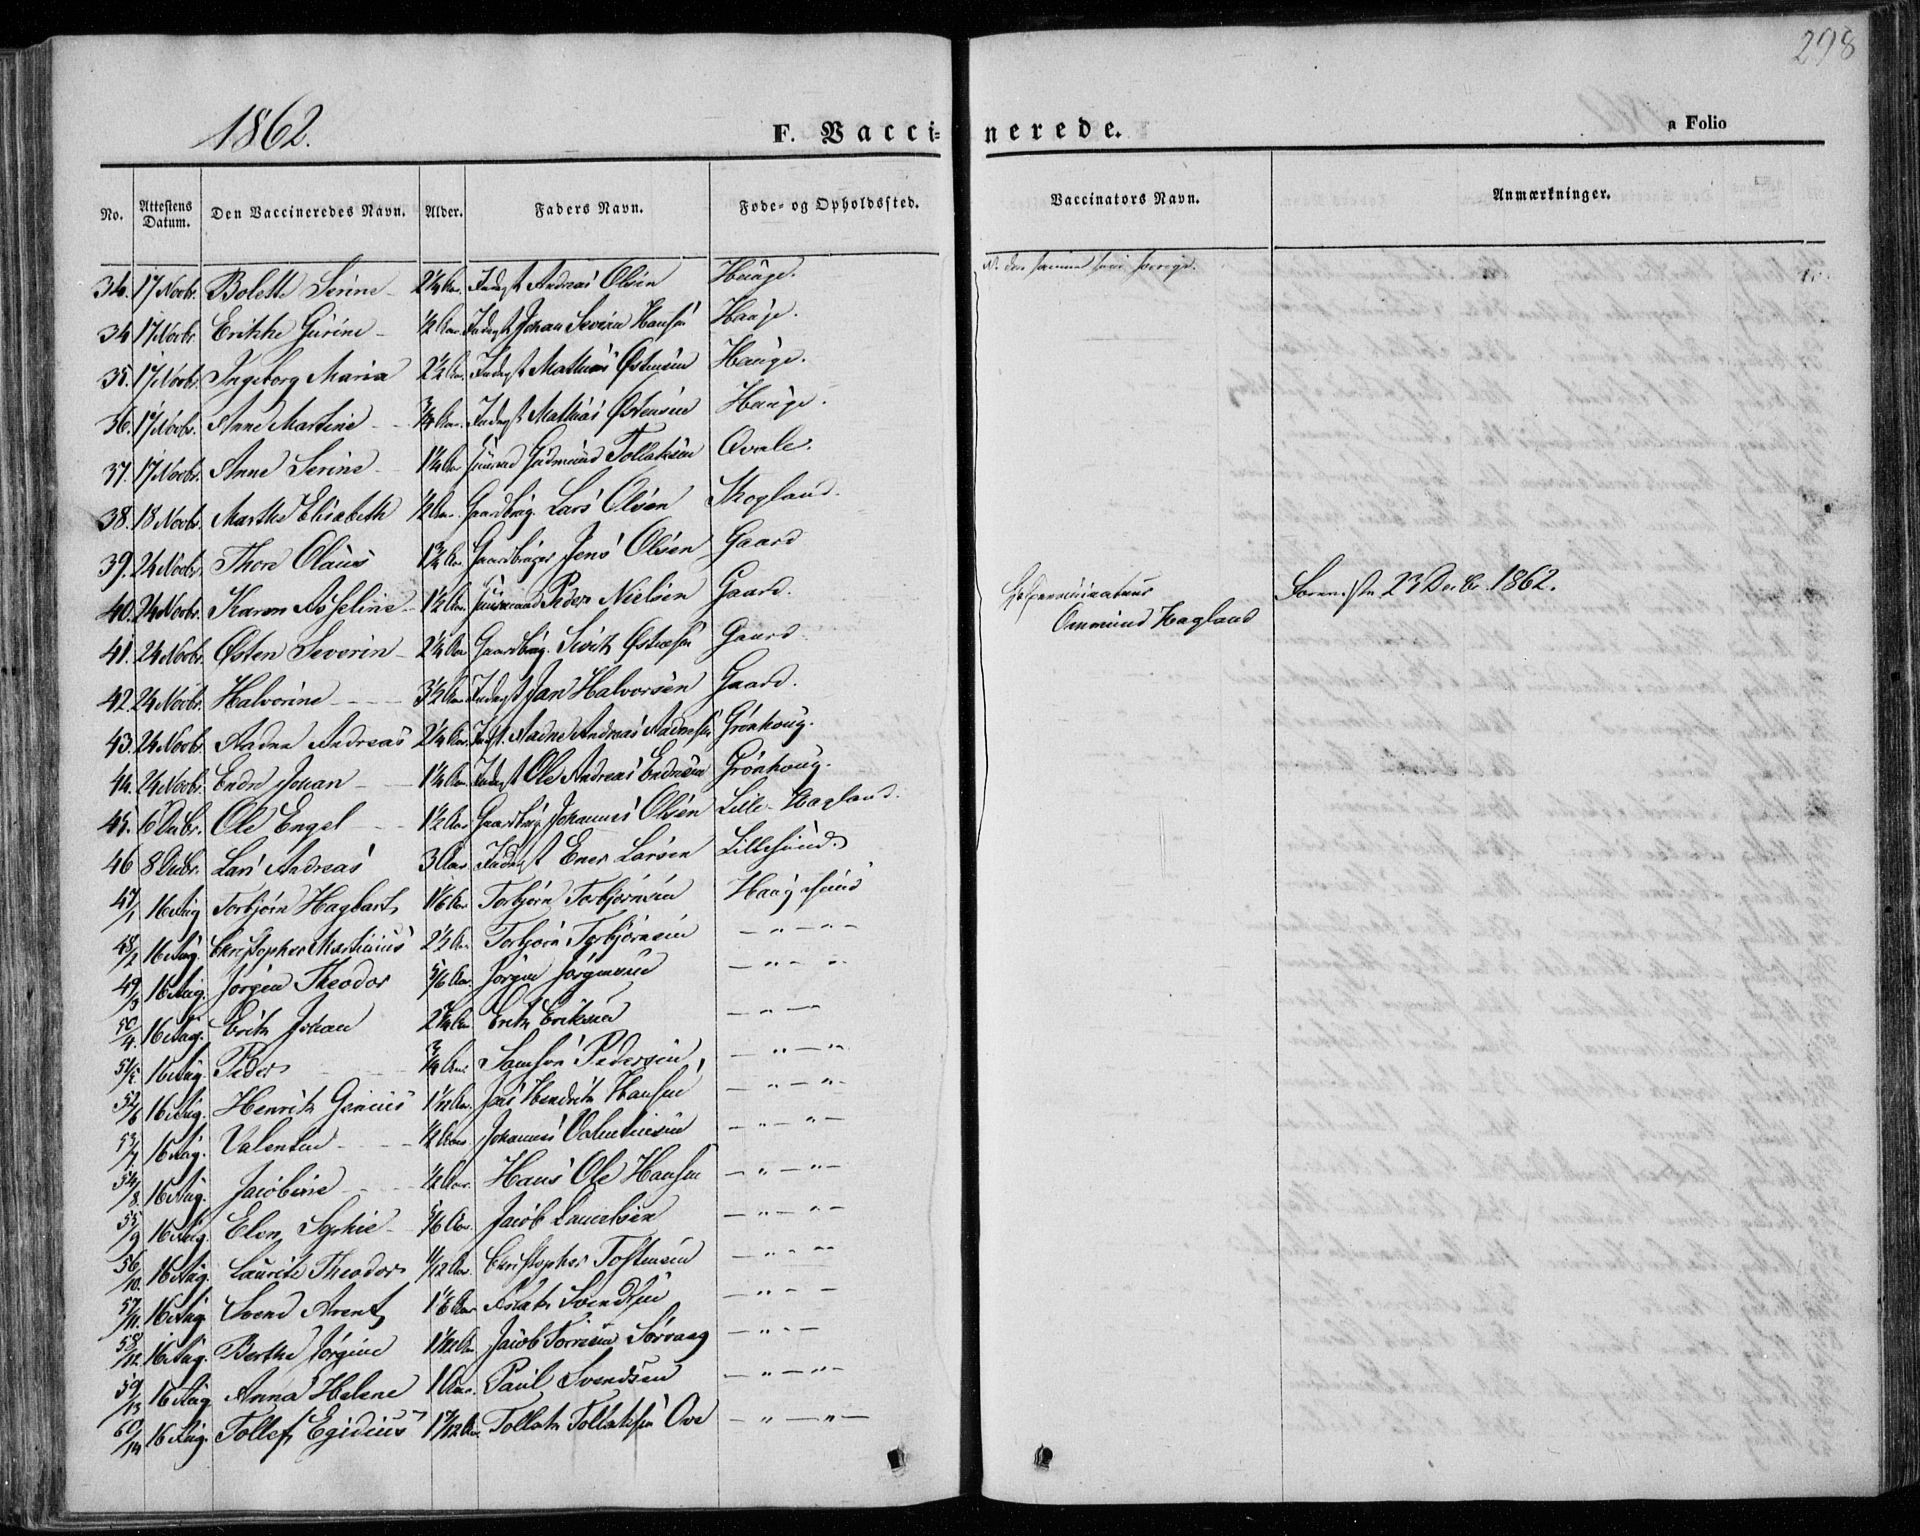 298
1862.
F. Vaccinerede.
a Folio
No. Attestens Datum. Den Vaccineredes Navn. Alder. Faders Navn. Føde- og Opholdssted. Vaccinators Navn. Anmærkninger.
34. 17 Novbr. Bolette Serine 2 1/4 Aar. Indegst Andreas Olsen Hauge.
34 17 Novbr. Erikke Gurine 1/2 Aar. Indegst Johan Severin Hansen Hauge.
35. 17 Novbr. Ingeborg Maria 2 1/2 Aar. Indegst Mathias Østensen Hauge.
36. 17 Novbr. Anne Martine 3/4 Aar. Indegst Mathias Østensen Hauge.
37. 17 Novbr. Anne Serine 1 1/4 Aar Huusmd Gudmund Tollaksen Qvale.
38. 18 Novbr. Marthe Elisabeth 1/2 Aar. Gaardbrug. Lars Olsen Skogland.
39. 24 Novbr. Thore Olaus 1 3/4 Aar Gaardbruger Jens Olsen Gaard
40. 24 Novbr. Karen Asseline 1 1/2 Aar Huusmand Peder Nielsen Gaard.
41. 24 Novbr. Østen Severin 2 1/4 Aar Gaardbrug. Sivert Østensen Gaard. Hjelpevaccinateur Oumund Hagland 23 Decbr. 1862.
42. 24 Novbr. Halvorine 3 1/2 Aar Indegst Jan Halvorsen Gaard.
43. 24 Novbr. Aadne Andreas 2 1/4 Aar. Indst. Aadne Andreas Aadnesen Grønhoug.
44. 24 Novbr. Endre Johan 1 1/4 Aar. Indegst Ole Andreas Endresen Grønhoug.
45. 6 Decbr. Ole Engel 1 1/2 Aar Gaardbrug. Johannes Olsen Lille-Hagland.
46 8 Decbr. Lars Andreas 3 Aar. Indegst Ener Larsen Lillesund.
47/1 16 Aug Torbjørn Hagbart 1 1/6 Aar Torbjørn Torbjørnsen Haugesund
48/2 16 Aug. Christopher Martinius 2 1/2 Aar. Torbjørn Torbjørnsen — " — " —
49/3 16 Aug. Jørgen Theodor 5/6 Aar Jørgen Jørgensen — " — "
50/4. 16 Aug. Erik Johan 2 3/4 Aar Erik Eriksen — " —
51/5. 16 Aug. Peder 3/4 Aar Samson Pedersen — " — "
52/6 16 Aug. Henrik Gerinius 1 1/12 Aar. Jens Hendrik Hansen — " — "
53/7. 16 Aug. Valentin 1/2 Aar Johannes Valentinsen — " — "
54/8. 16 Aug. Jacobine 1/2 Aar. Hans Ole Hansen — " — " —
55/9 16 Aug. Elen Sophie 5/6 Aar. Jacob Lauritsen — " — "
56/10. 16 Aug. Laurits Theodor 11/12 Aar. Christopher Toftensen — " — "
57/11. 16 Aug. Svend Arent 1 1/6 Aar Aslak Svendsen — " — "
58/12 16 Aug. Berthe Jørgine 1 1/12 Aar Jacob Torresen Sørvaag — " — "
59/13 16 Aug Anna Helene 1 Aar. Paul Svendsen — " — "
60/14 16 Aug. Tollef Egidius 1 7/12 Aar. Tollak Tollaksen Ove — " — " —